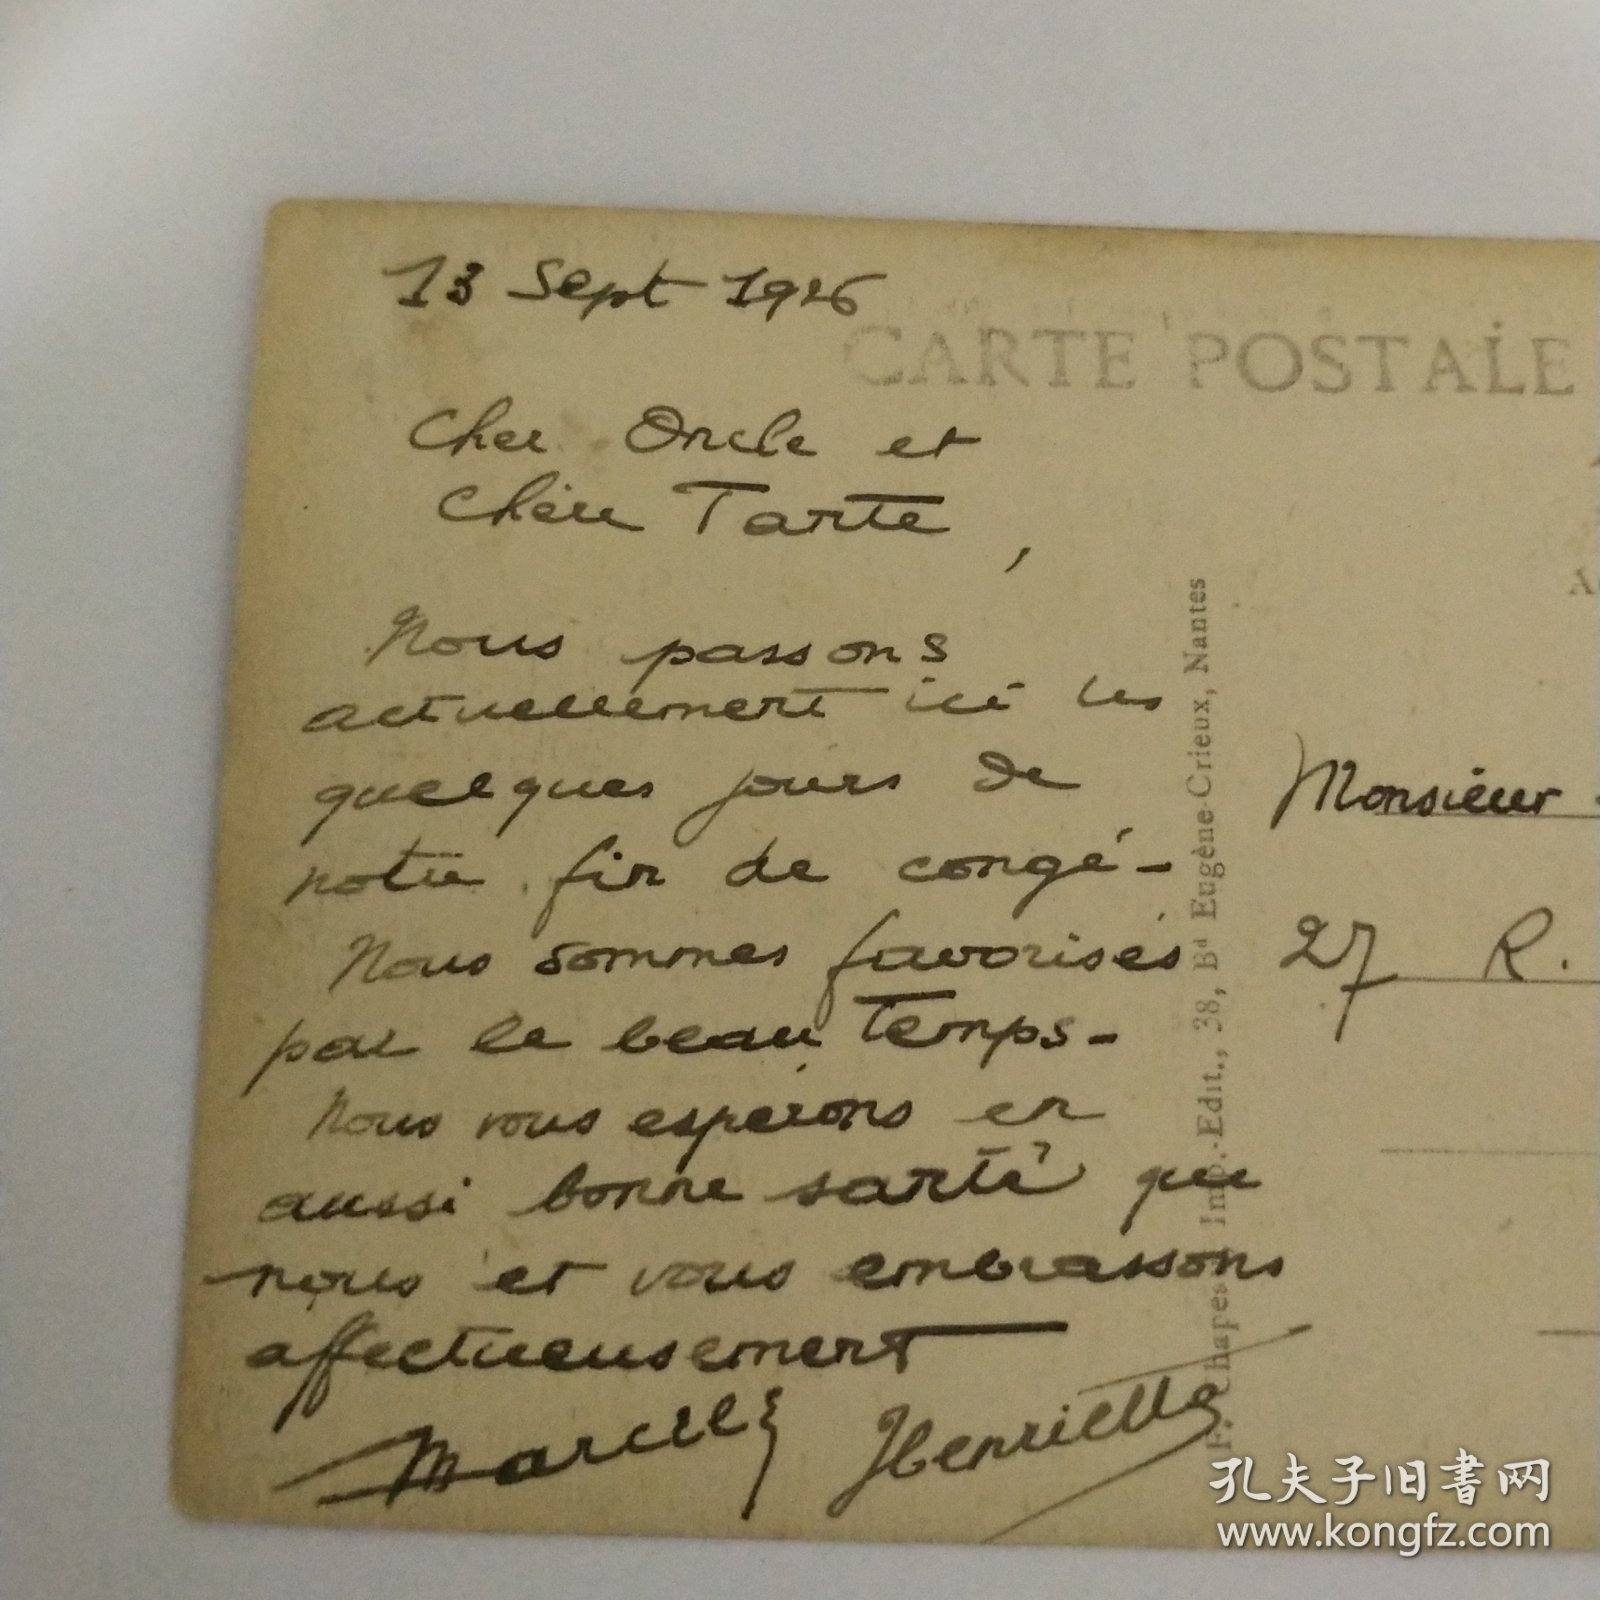 13 Sept 1926
CARTE POSTALE
Cher Oncle et
Chère Tante,
Nous passons
actuellement ici les
quelques jours de
notre fin de congé -
Nous sommes favorisés
par le beau temps -
Nous vous espérons en
aussi bonne santé que
nous et vous embrassons
affectueusement
Marcel Henriette
F. Chapeau Imp.-Edit., 38, Bd Eugène-Crieux, Nantes
Monsieur
27 R.
孔夫子旧书网
www.kongfz.com